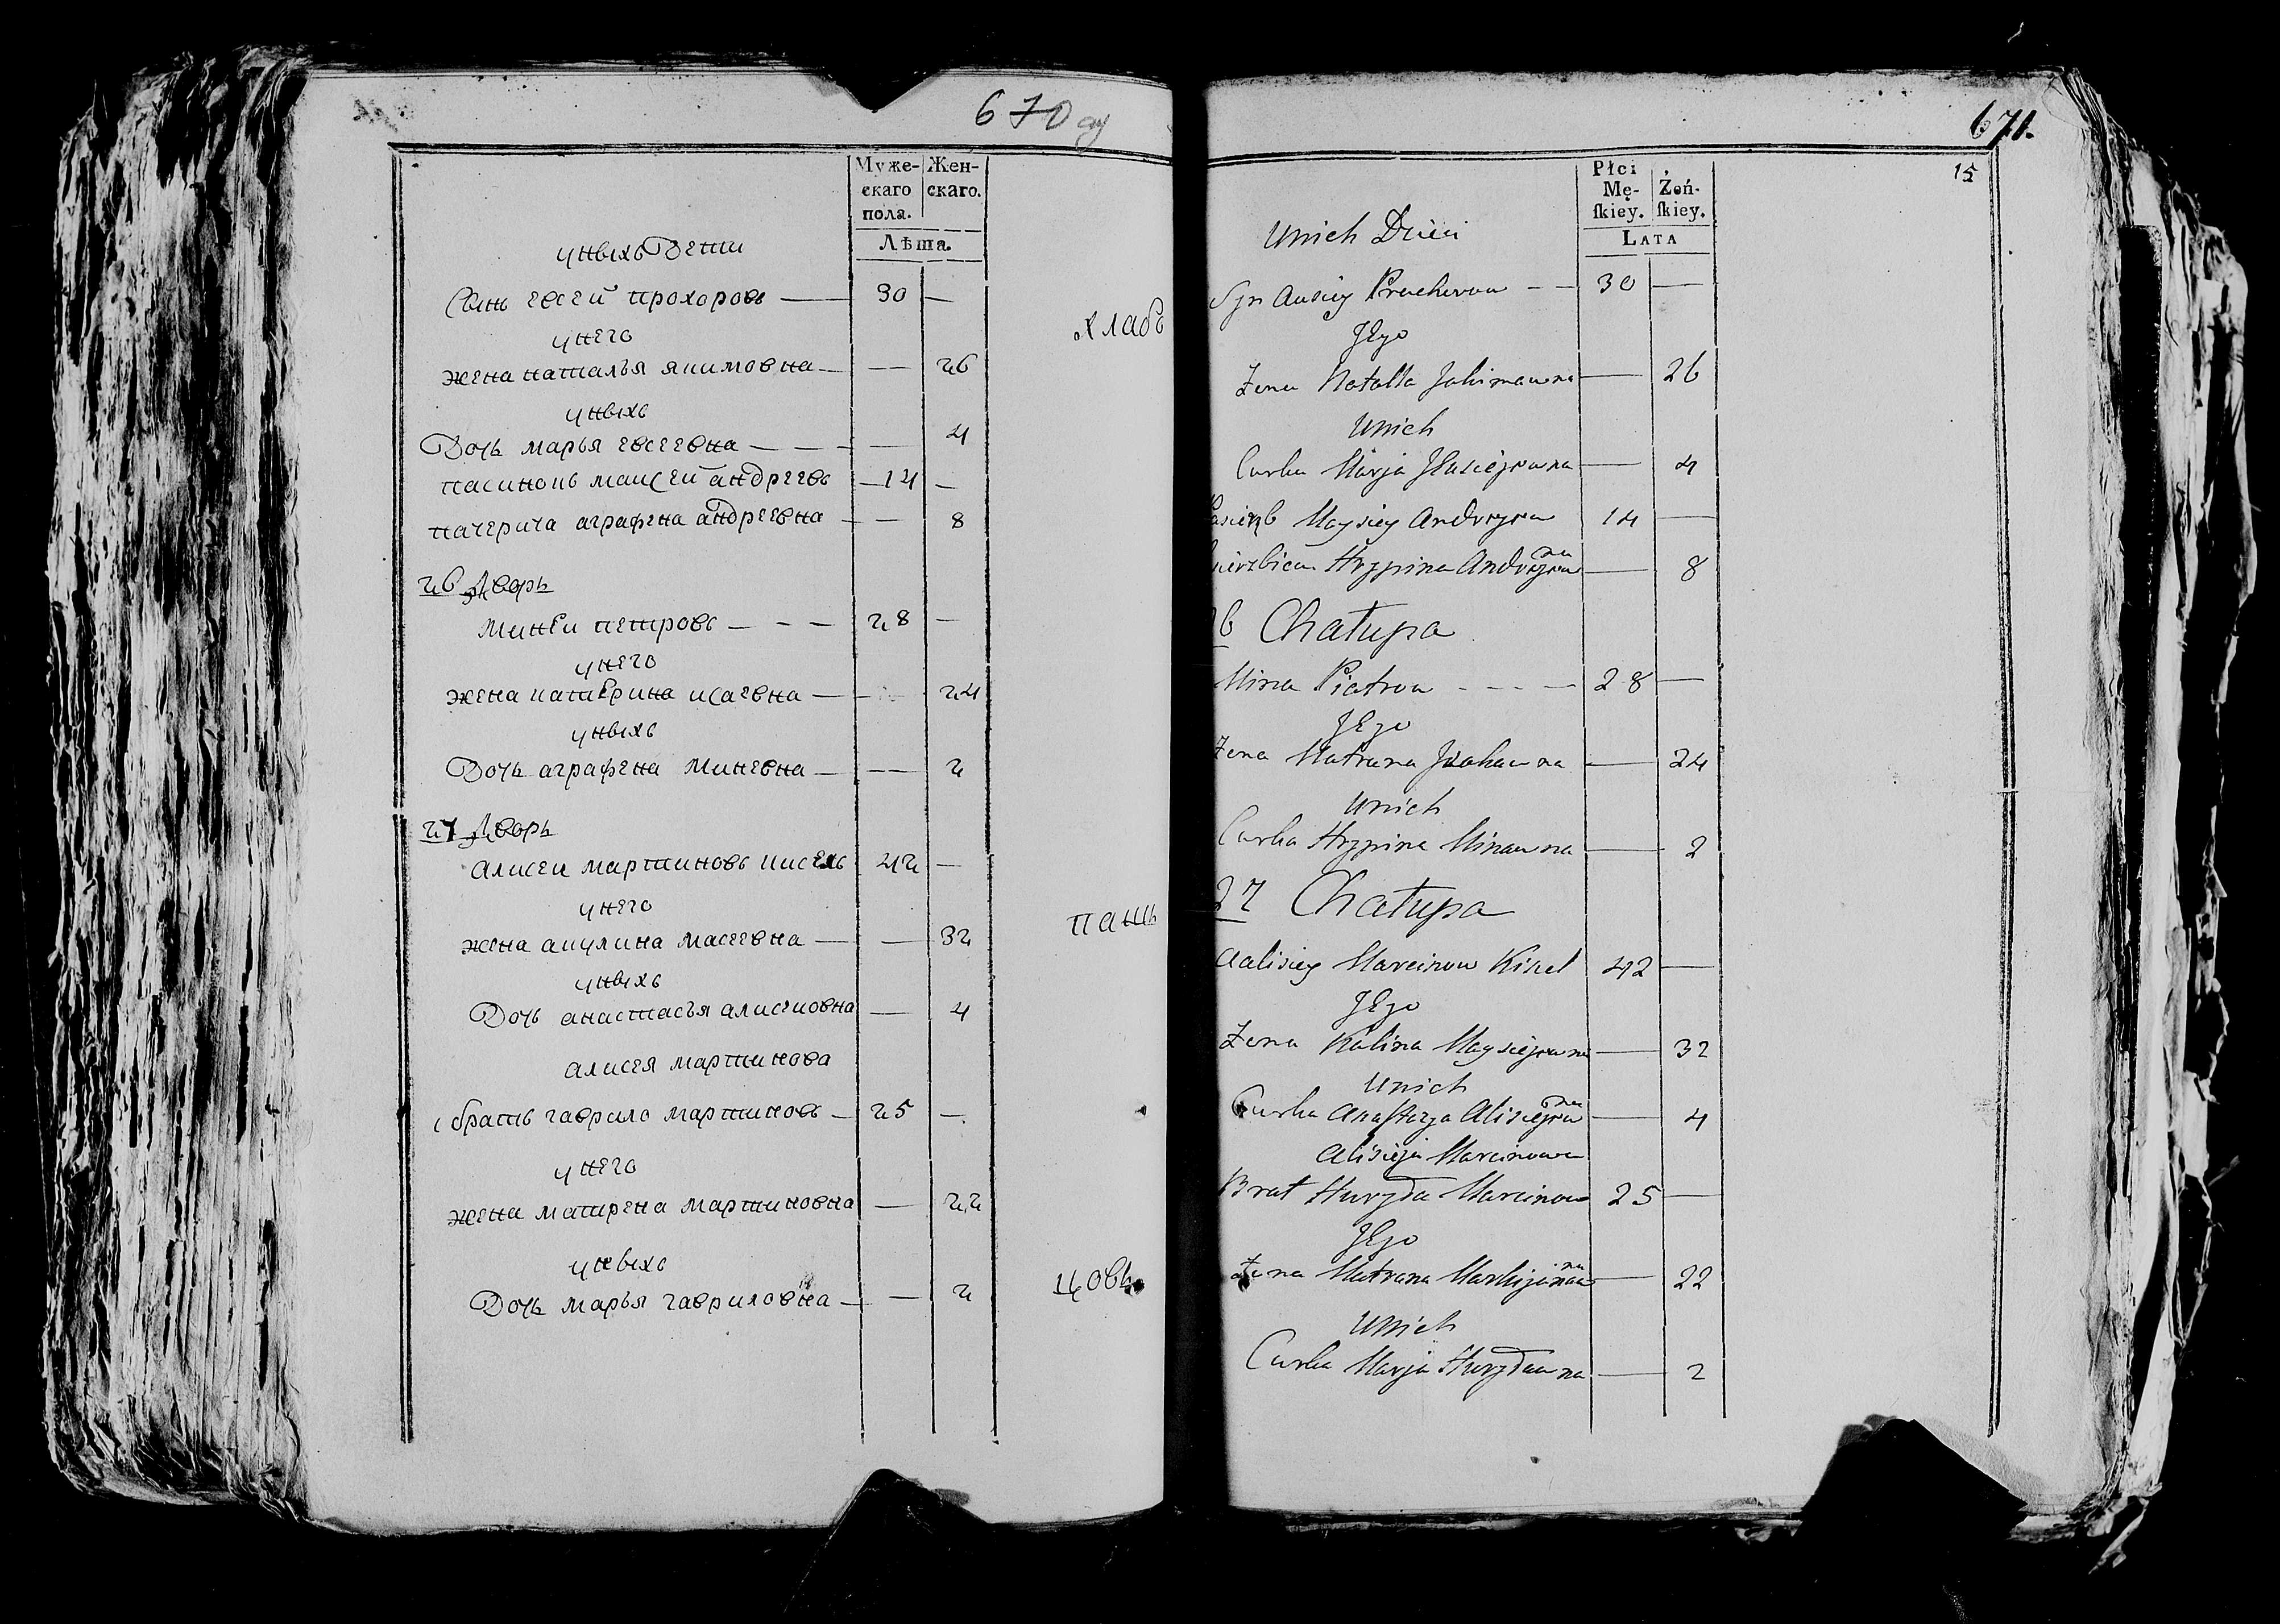 670 об
Муже-
скаго
пола.
Жен-
скаго.
Лѣта.
у ныхъ дети
Сынъ евсей прохоровъ — 30 —
у него
жена наталья якимовна — — 26
у ныхъ
Дочь марья евсеевна — — — — 4
пасинокъ маисей андреевъ — 14 —
пачерица аграфена андреевна — — 8
26 дворъ
Миней петровъ — — — 28 —
у него
жена катерина исаевна — — 24
у ныхъ
Дочь аграфена миневна — — 2
27 дворъ
алисеи мартиновъ кисель 42 —
у него
жена акулина масеевна — — 32
у ныхъ
Дочь анастасъя алисиовна — 4
алисея мартинова
братъ гаврило мартиновъ — 25 —
у него
жена матрена мартиновна — 22
у ныхъ
Дочь марья гавриловна — — 2
хлабо
пань
цовъ
671.
15
Płci
Mę-
ſkiey.
Żeń-
ſkiey.
LATA
U nich Dzieci
Syn Ausiey Prochorow — — 30 —
Jego
Zona Natalla Jakimowna — 26
U nich
Curka Marja Jeusiejewna — 4
Pasierzb Maysiey Andrejew 14 —
Hrypina Andrejewna — 8
26 Chałupa
Mina Piatrow - - - — 28 —
Jego
Zona Matruna Jzakowna — 24
U nich
Curka Hrypina Minawna — 2
27 Chałupa
Aalisiey Marcinow Kisel 42 —
Jego
Zona Kulina Maysiejewna — 32
U nich
Curka Anastazya Alisiejewna — 4
Alisieja Marcinowa
Brat Hauryła Marcinow 25 —
Jego
Zona Matrona — 22
U nich
Curka Marja Hauryławna — 2